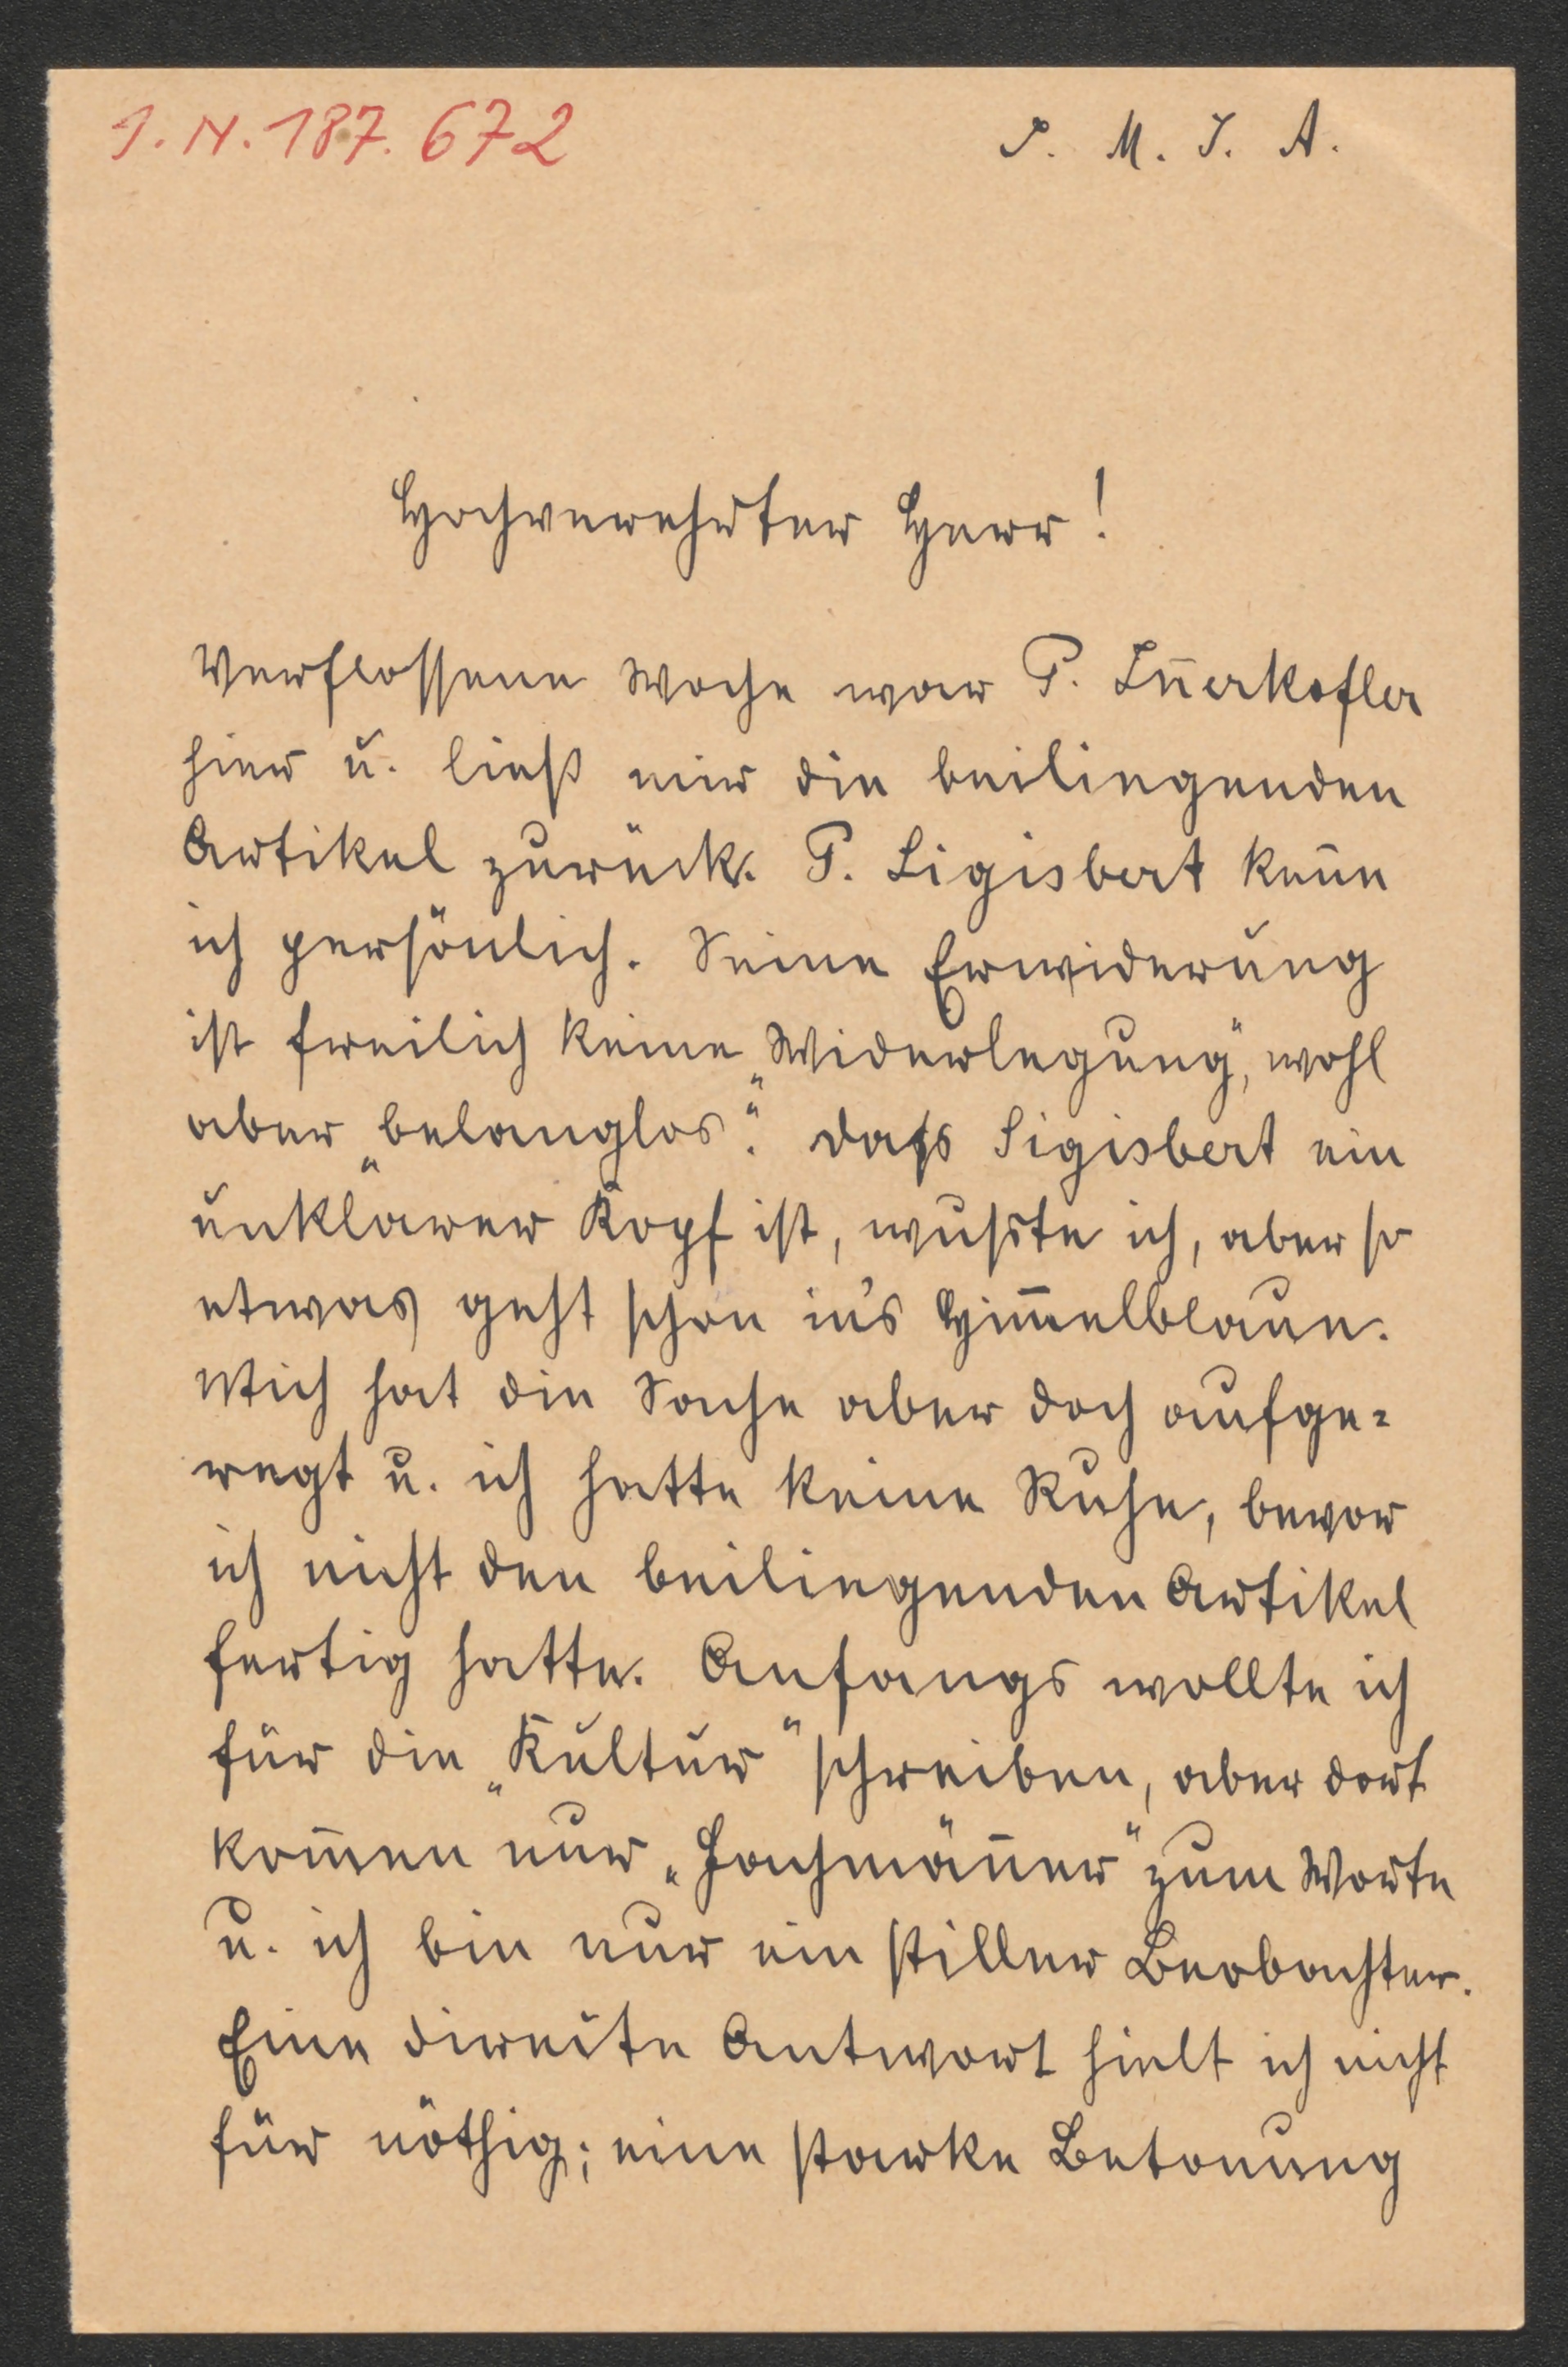 I.N. 187.672
J. M. J. A.
Hochverehrter Herr!
Verflossene Woche war P. Iñerkofler
hier u. ließ mir die beiliegenden
Artikel zurück. P. Sigisbert keñe
ich persönlich. Seine Erwiderung
ist freilich keine „Widerlegung“, wohl
aber „belanglos“. Dass Sigisbert ein
unklarer Kopf ist, wußte ich, aber so
etwas geht schon in's Him̄elblaue.
Mich hat die Sache aber doch aufge-
regt u. ich hatte keine Ruhe, bevor
ich nicht den beiliegenden Artikel
fertig hatte. Anfangs wollte ich
für die „Kultur“ schreiben, aber dort
kom̄en nur „Fachmäñer“ zum Worte
u. ich bin nur ein stiller Beobachter.
Eine direkte Antwort hielt ich nicht
für nöthig; eine starke Betonung